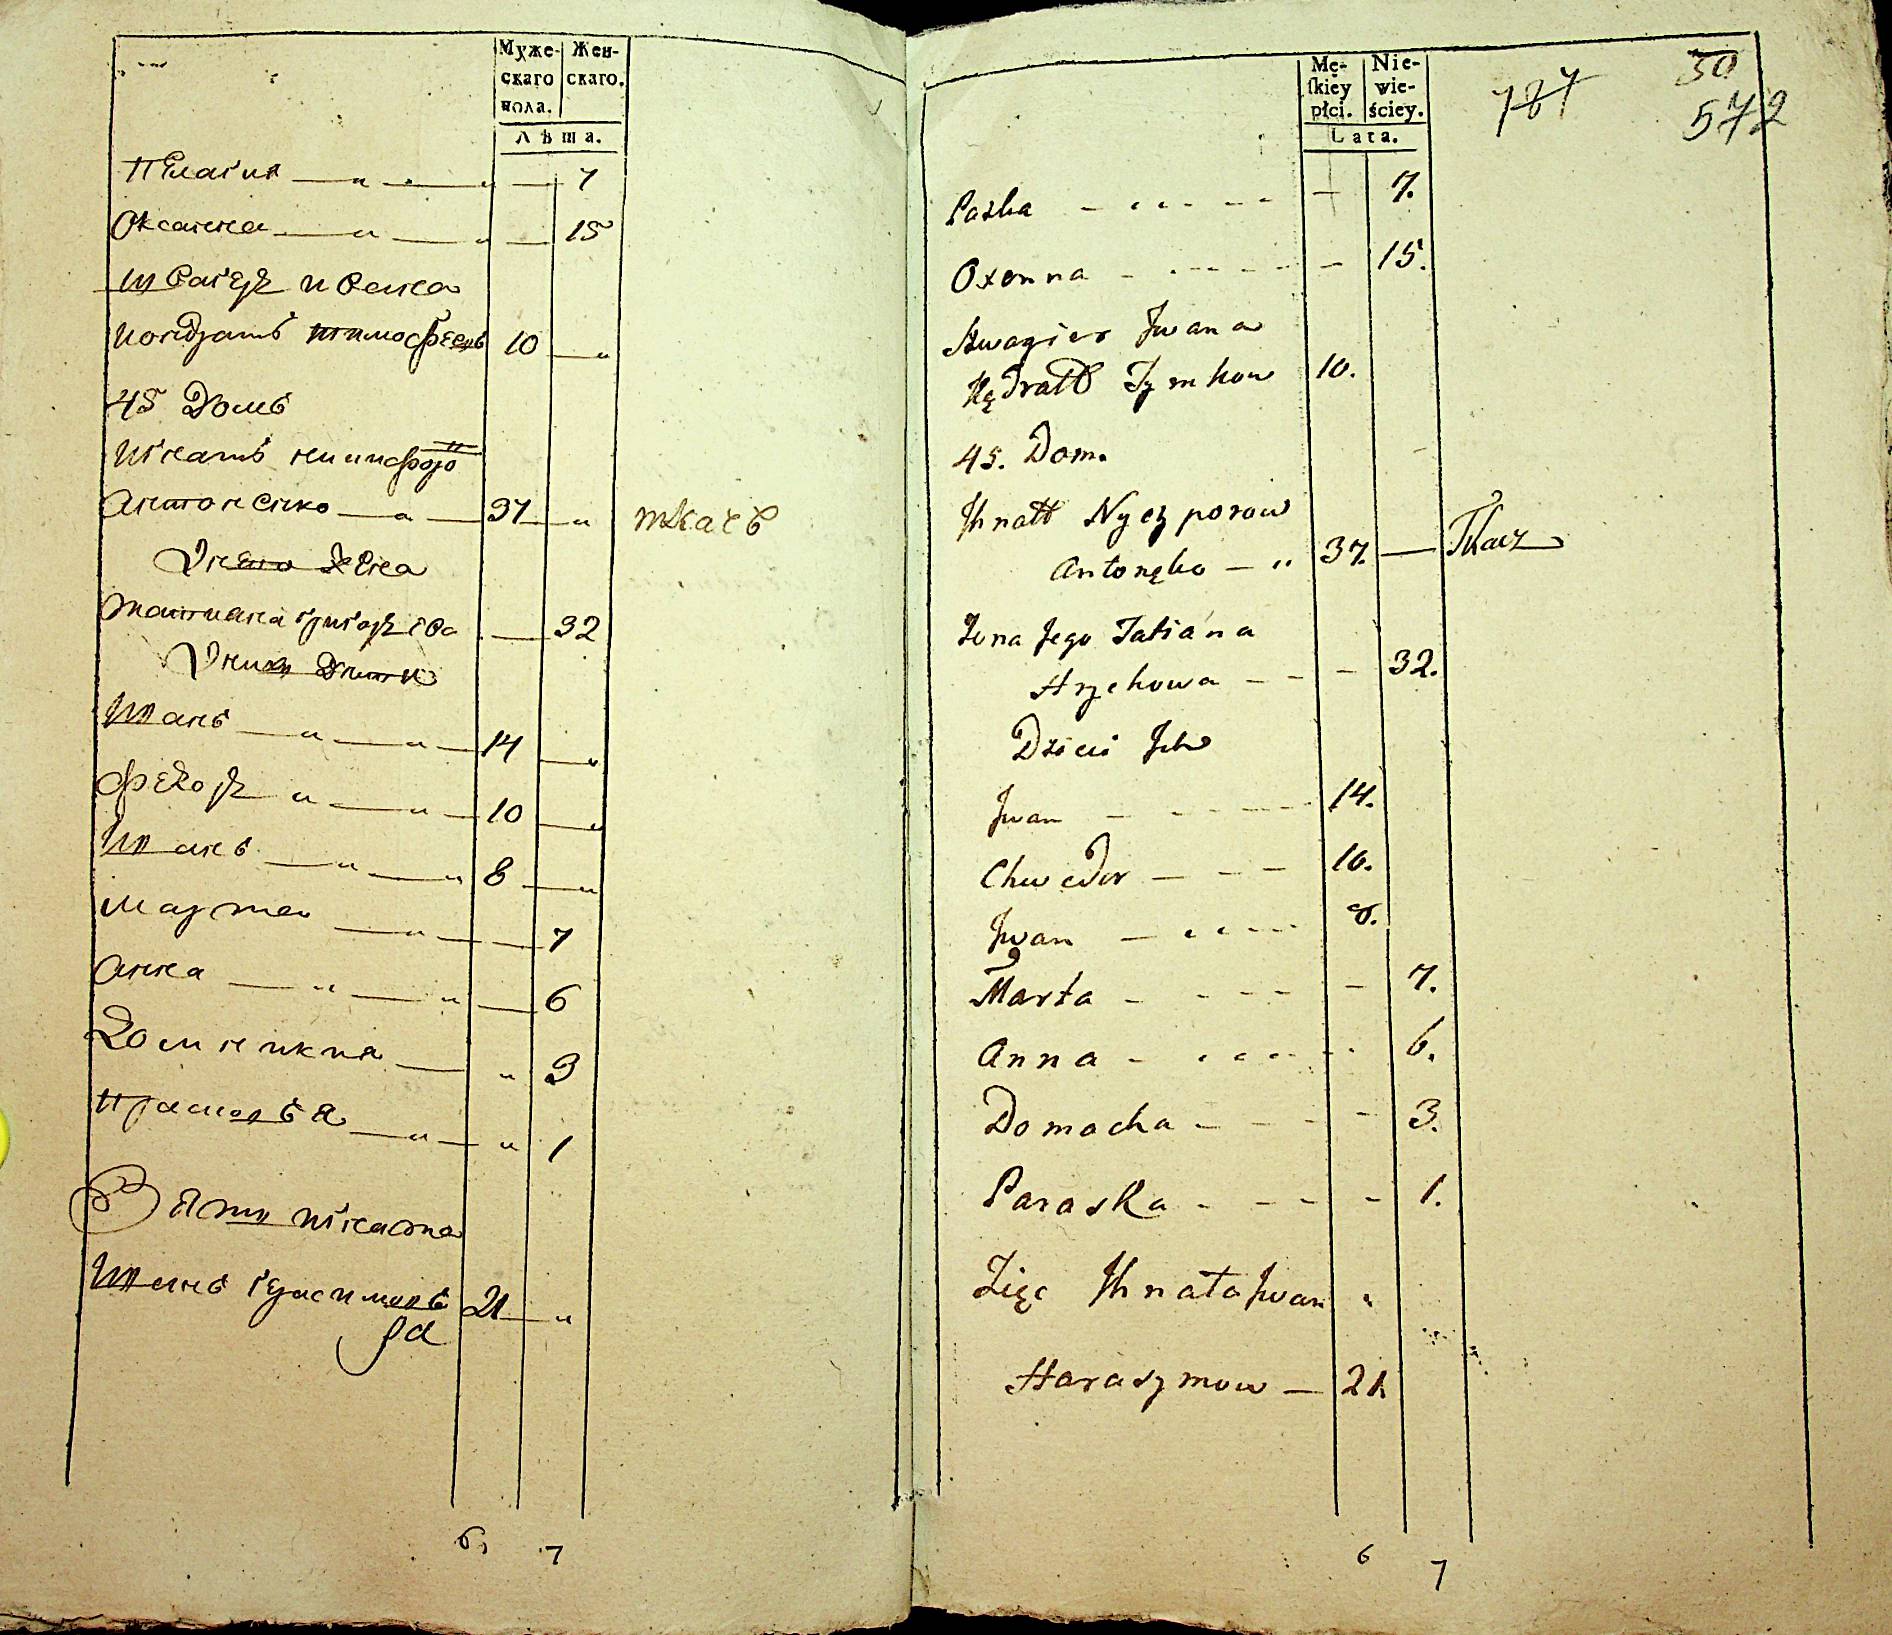 Муже-
скаго
пола.
Жен-
скаго.
Лѣта.
Пелагия 7
Оксанна 15
Швагеръ ивана
Кондратъ тимофеевъ 10
45 Домъ
Игнатъ никифоро
Антоненко 37 ткачь
У него жена
Татиана григорьева 32
У них дети
Иванъ 14
Федоръ 10
Иванъ 8
Марта 7
Анна 6
Домникия 3
Прасковья 1
Зять игната
Иванъ герасимовъ 21
6 7
Mę-
ſkiey
płci.
Nie-
wie-
ściey.
Lata.
787
50
572
Paźka 7.
Oxenna 15.
Szwagier Jwana
Kędratt Tymkow 10.
45. Dom.
Jhnatt Nyczyporow
Antonęko 37. Tkacz
Żona Jego Tatiana
Hrychowa 32.
Dzieci Jch
Jwan 14.
Chwedor 10.
Jwan 8.
Marta 7.
Anna 6.
Domacha 3.
Paraska 1.
Zięc Jhnata Jwan
Harasymow 21.
6 7